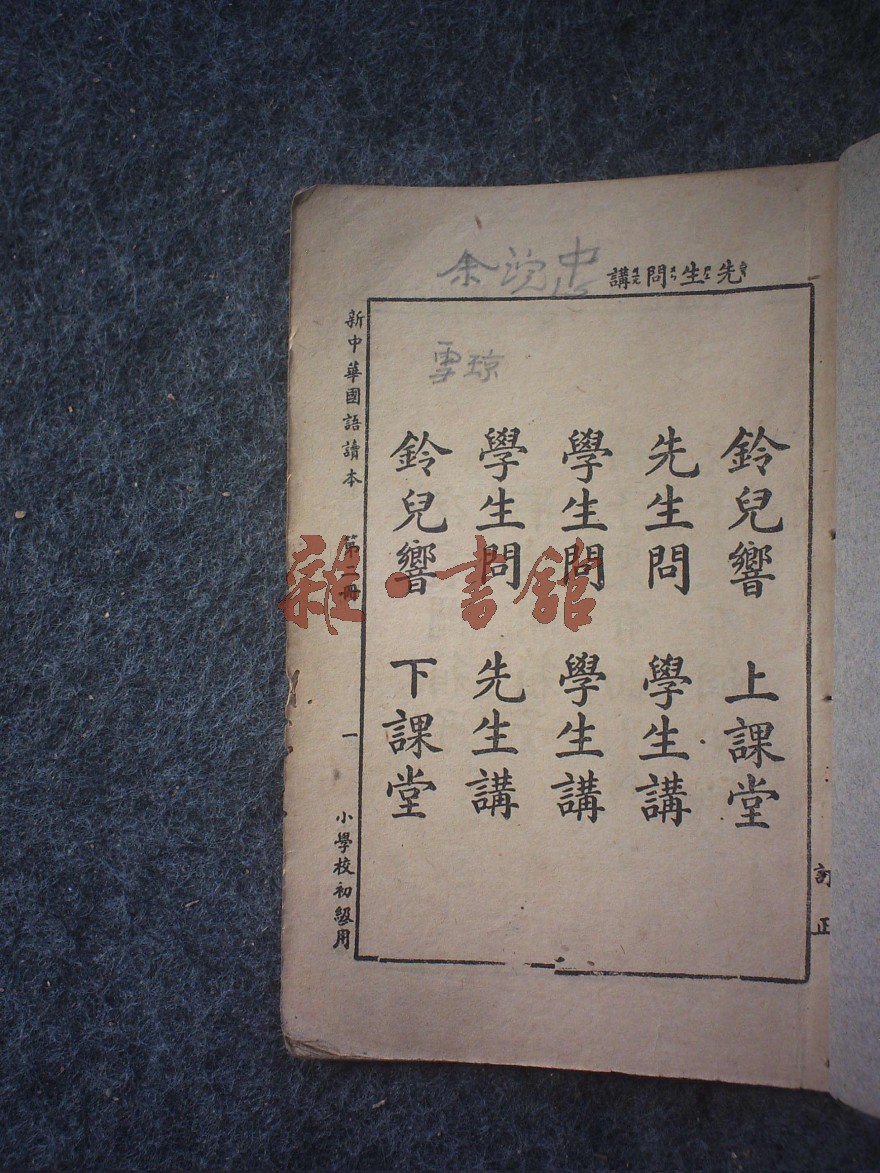 先生問講
鈴兒響 上課堂
先生問 學生講
學生問 學生講
學生問 先生講
鈴兒響 下課堂
新中華國語讀本 第 冊 一 小學校初級用
訂正
雪琼
雜·書館